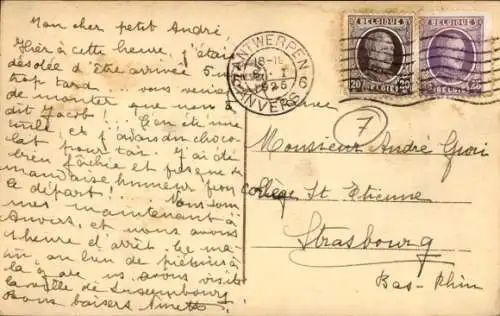 Mon cher petit André
Hier à cette heure j'étais
désolée d'être arrivée 5 m
trop tard vous veniez
de monter que nous a
dit Jacob! J'en été une
tuile, et j'avais du choco-
lat pour toi. J'ai été
bien fâchée et presque de
mauvaise humeur pour
le départ! Nous som
mes maintenant à
Anvers, et nous avons
1 heure d'arrêt. Ce ma-
tin, au lieu de
la gare ns avons visité
la ville de Luxembourg
Bons baisers Ninette
ANTWERPEN
1925
ANVERS
6
BELGIQUE
20 BELGIË 20
BELGIQUE
BELGIË
7
Monsieur André
Collège St Etienne
Strasbourg
Bas-Rhin